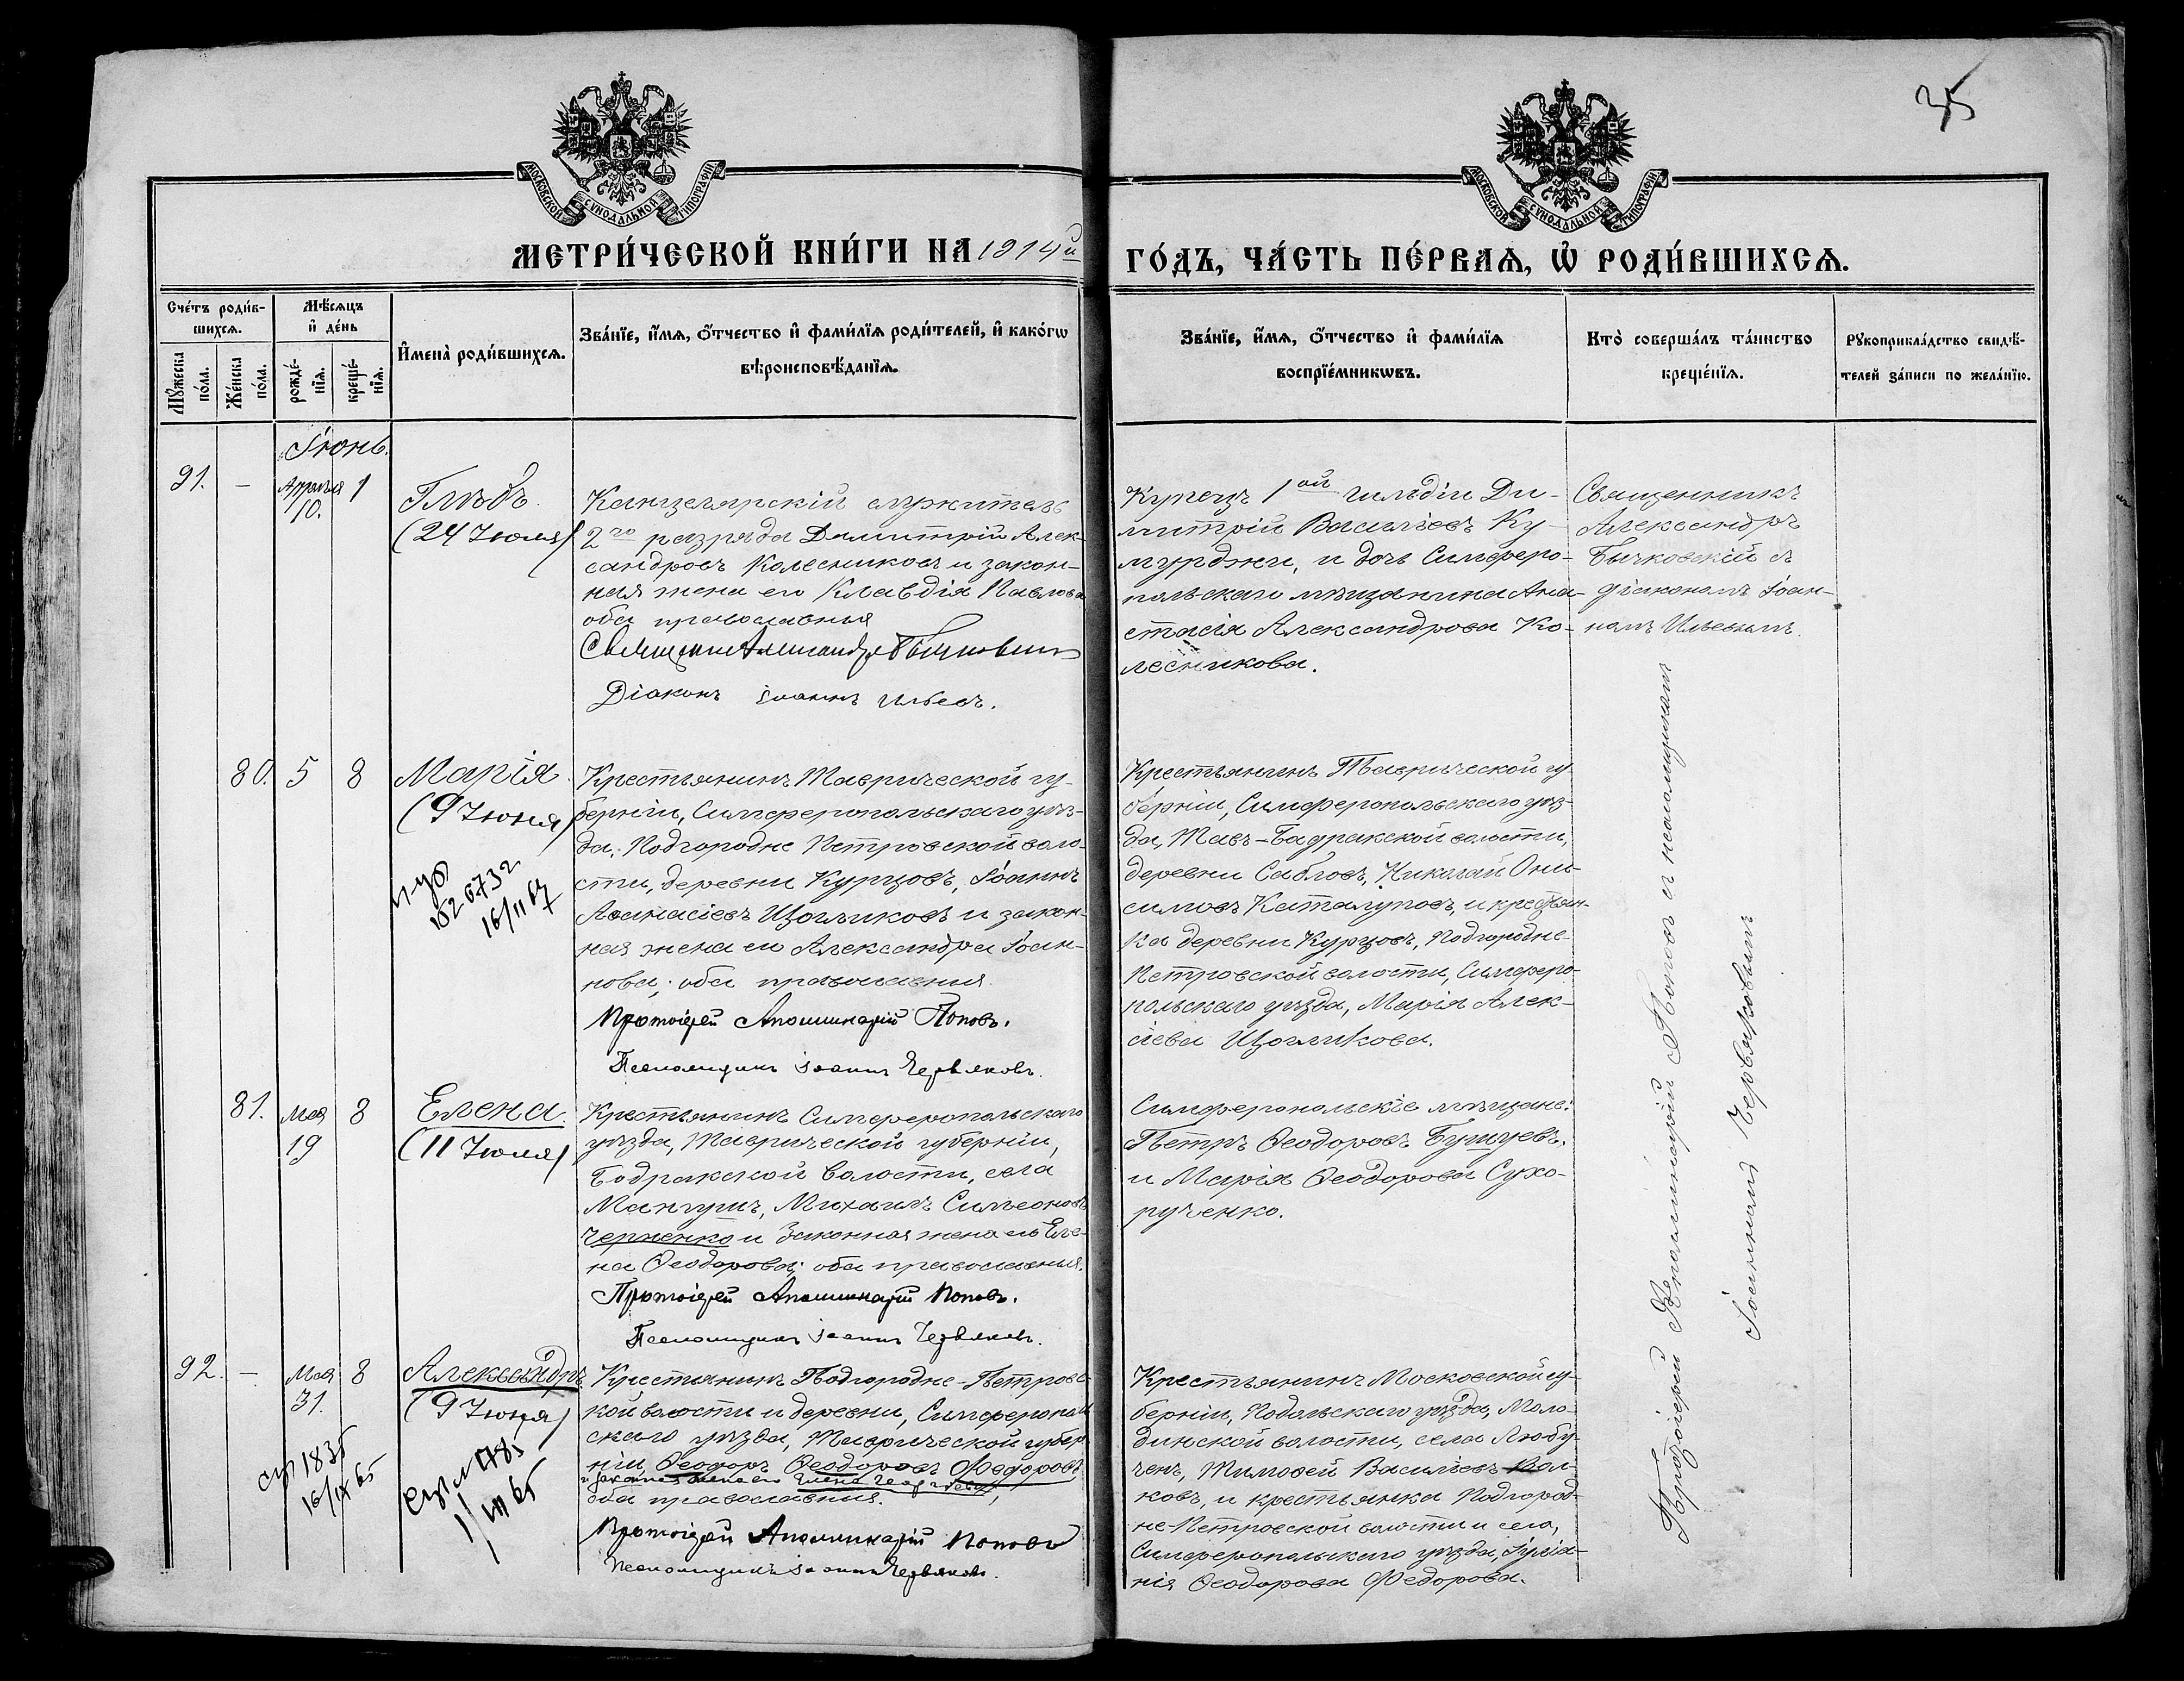 35
МОСКОВСКОЙ СѴНОДАЛЬНОЙ ТИПОГРАФІИ
МОСКОВСКОЙ СѴНОДАЛЬНОЙ ТИПОГРАФІИ
МЕТРИ́ЧЕСКОЙ КНИ́ГИ НА 1914й
ГО́ДЪ, ЧА́СТЬ ПЕ́РВАѦ, Ѡ҆ РОДИ́ВШИХСѦ.
Сче́тъ роди́в-
шихсѧ.
Мꙋ́жеска
по́ла.
Же́нска
по́ла.
Мѣ́сѧцъ
и҆ де́нь
рожде́-
нїѧ.
креще́-
нїѧ.
И҆мена̀ роди́вшихсѧ.
Зва́нїе, и҆́мѧ, ѻ҆́тчество и҆ фами́лїѧ роди́телей, и҆ како́гѡ
вѣроисповѣ́данїѧ.
Зва́нїе, и҆́мѧ, ѻ҆́тчество и҆ фами́лїѧ
воспрїе́мникѡвъ.
Кто̀ соверша́лъ та́инство
креще́нїѧ.
Рꙋкоприкла́дство свидѣ́-
телей за́писи по жела́нїю.
Іюнь.
91.
-
Апрѣля
10.
1
Глѣбъ.
(24 Іюля)
Канцелярскій служитель
2го разряда Димитрій Алек-
сандровъ Колесниковъ и закон-
ная жена его Клавдія Павлова
оба православныя
Священникъ Александръ Бычковскій
Діаконъ Іоаннъ Ильевъ.
Купецъ 1ой гильдіи Ди-
митрій Васильевъ Ку-
мурджи, и дочь Симферо-
польскаго мѣщанина Ана-
стасія Александрова Ко-
лесникова.
Священникъ
Александръ
Бычковскій съ
діакономъ Іоан-
номъ Ильевымъ.
80.
5
8
Марія.
(9 Іюня)
1526732
16/II 67
Крестьянинъ Таврической гу-
берніи, Симферопольскаго уѣз-
да, Подгородне Петровской воло-
сти, деревни Курцовъ, Іоаннъ
Аѳанасіевъ Щогликовъ и закон-
ная жена его Александра Іоан-
нова; оба православныя.
Протоіерей Аполлинарій Поповъ.
Псаломщикъ Іоаннъ Червяковъ.
Крестьянинъ Таврической гу-
берніи, Симферопольскаго уѣз-
да, Тавъ-Бадракской волости,
деревни Саблов, Николай Они-
симовъ Каталуповъ, и крестьян-
ка деревни Курцовъ, Подгородне-
Петровской волости, Симферо-
польскаго уѣзда, Марія Алек-
сіева Щогликова.
81.
Мая
19
8
Елена.
(11 Іюля)
Крестьянинъ Симферопольскаго
уѣзда, Таврической губерніи,
Бодракской волости, села
Мангушъ, Михаилъ Симеоновъ
Черненко и законная жена его Еле-
на Ѳеодорова; оба православныя.
Протоіерей Аполлинарій Поповъ.
Псаломщикъ Іоаннъ Червяковъ.
Симферопольскіе мѣщане:
Петръ Ѳеодоровъ Бушуевъ.
и Марія Ѳеодорова Сухо-
рученко.
92.
-
Мая
31.
8
Александръ
(9 Іюня)
1835
16/IX 65
1785
1/VII 65
Крестьянинъ Подгородне-Петровс-
кой волости и деревни, Симферополь
скаго уѣзда, Таврической губер
ніи, Ѳеодоръ Ѳеодоровъ Федоровъ
и законная жена его Елена Георгіева,
оба православныя.
Протоіерей Аполлинарій Поповъ
Псаломщикъ Іоаннъ Червяковъ.
Крестьянинъ Московской гу-
берніи, Подольскаго уѣзда, Моло-
динской волости, села Любу-
ченъ, Тимоѳей Васильевъ Вол-
ковъ, и крестьянка Подгород-
не-Петровской волости и села,
Симферопольскаго уѣзда, Іуліа-
нія Ѳеодорова Федорова.
Протоіерей Аполлинарій Поповъ съ псаломщикомъ
Іоанномъ Червяковымъ